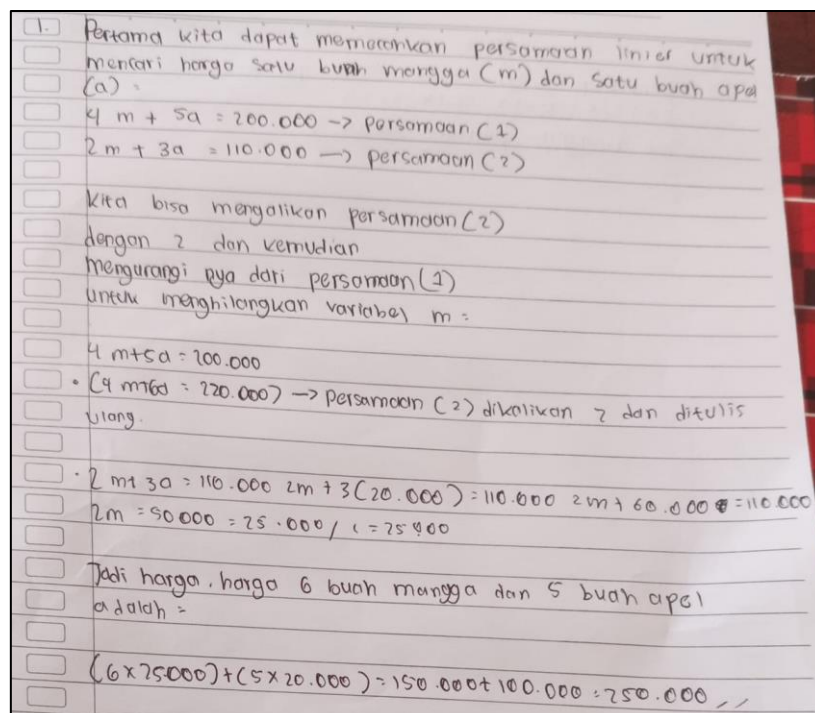 1. Pertama kita dapat memecahkan persamaan linier untuk
mencari harga satu buah mangga (m) dan satu buah apel
(a) =
4 m + 5a = 200.000 -> persamaan (1)
2 m + 3a = 110.000 -> persamaan (2)
Kita bisa mengalikan persamaan (2)
dengan 2 dan kemudian
mengurangi nya dari persamaan (1)
untuk menghilangkan variabel m =
4 m+5a = 200.000
• (4 m+6a = 220.000) -> persamaan (2) dikalikan 2 dan ditulis
ulang.
• 2 m+ 3a = 110.000 2m + 3(20.000) = 110.000 2m + 60.000 = 110.000
2m = 50000 = 25.000 / = 25.000
Jadi harga, harga 6 buah mangga dan 5 buah apel
adalah =
(6x25.000)+(5x20.000) = 150.000+100.000 = 250.000,,